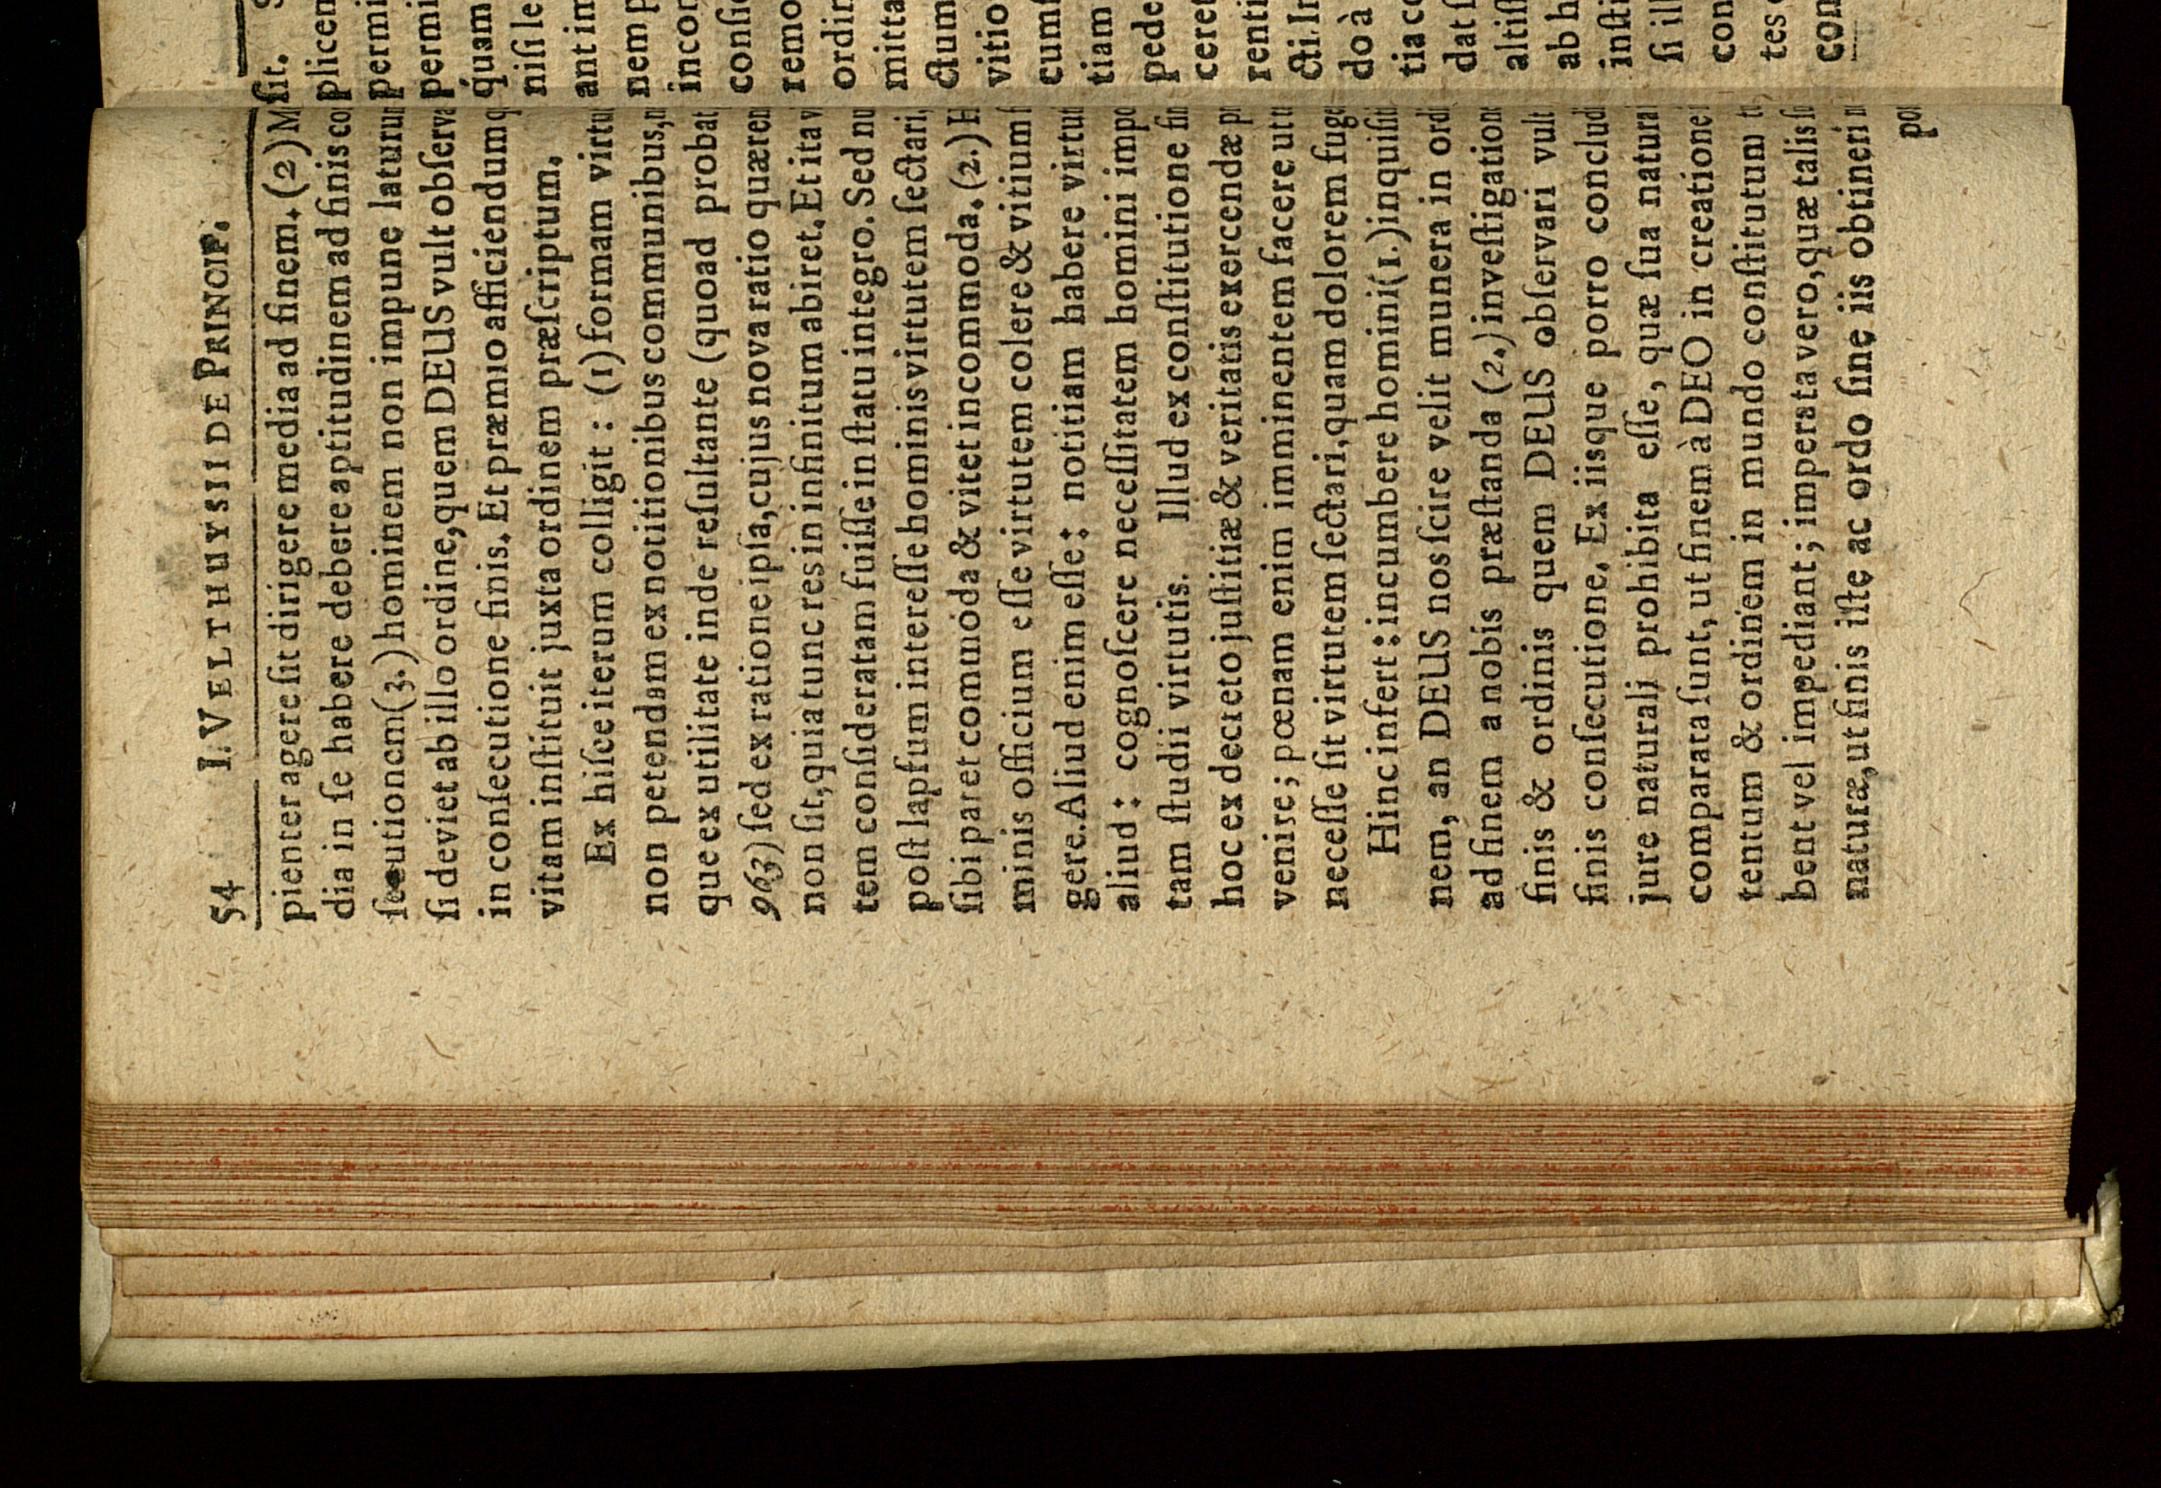 54 I. VELTHUYSI DE PRINCIP.
pienter agere ſit dirigere media ad finem. (2) M
dia in ſe habere debere aptitudinem ad finis co
ſecutionem (3.) hominem non impune laturu
ſi deviet ab illo ordine, quem DEUS vult obſerva
in conſecutione finis. Et præmio afficiendum q
vitam inſtituit juxta ordinem præſcriptum.
Ex hiſce iterum colligit : (1) formam virtu
non petendam ex notitionibus communibus, n
que ex utilitate inde reſultante (quoad probat
963) ſed ex ratione ipſa, cujus nova ratio quæren
non ſit, quia tunc res in infinitum abiret. Et ita v
tem conſideratam fuiſſe in ſtatu integro. Sed nu
poſt lapſum intereſſe hominis virtutem ſectari,
ſibi paret commoda & vitet incommoda. (2.) H
minis officium eſſe virtutem colere & vitium f
gere. Aliud enim eſſe : notitiam habere virtut
aliud : cognoſcere neceſſitatem homini impo
tam ſtudii virtutis. Illud ex conſtitutione fin
hoc ex decreto juſtitiæ & veritatis exercendæ pr
venire ; pœnam enim imminentem facere ut t
neceſſe ſit virtutem ſectari, quam dolorem fuge
Hinc infert : incumbere homini (1.) inquiſit
nem, an DEUS nos ſcire velit munera in ordi
ad finem a nobis præſtanda (2.) inveſtigation
finis & ordinis quem DEUS obſervari vult
finis conſecutione. Ex iisque porro conclud
jure naturali prohibita eſſe, quæ ſua natura
comparata ſunt, ut finem à DEO in creatione
tentum & ordinem in mundo conſtitutum t
bent vel impediant ; imperata vero, quæ talis ſu
naturæ, ut finis iſte ac ordo ſine iis obtineri n
po
ſit.
plicen
permi
permi
quam
niſi le
ant im
nem p
incor
conſi
remo
ordin
mitta
ctum
vitio
cumſ
tiam
pede
ceret
renti
cti. In
do à
tia c
dat ſ
altiſſ
ab h
inſti
ſi ill
con
tes
con